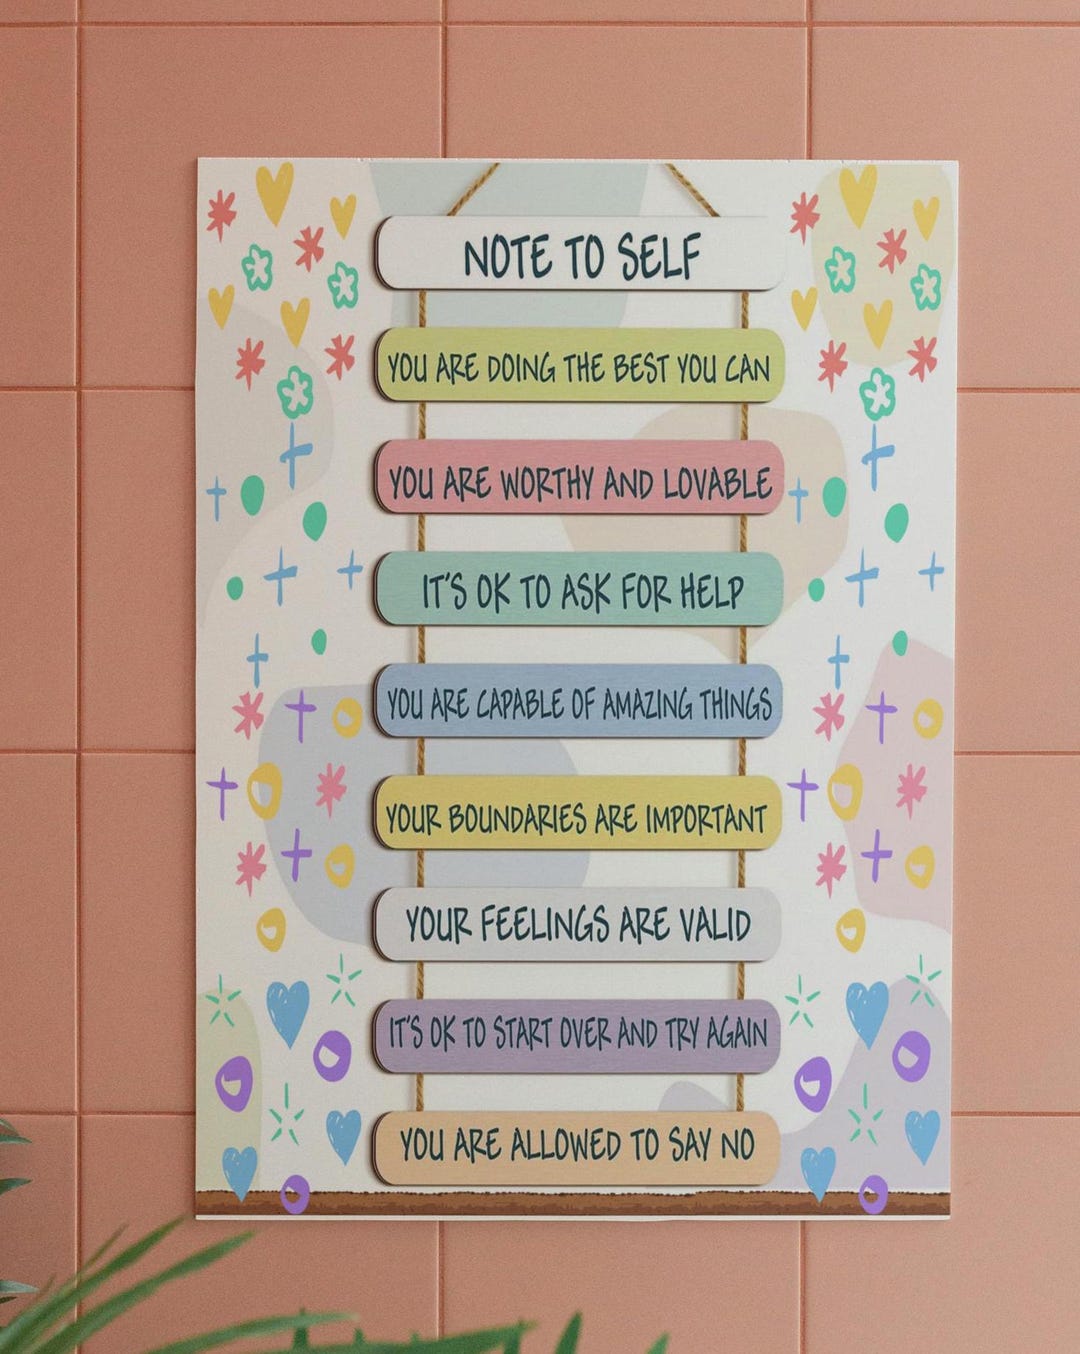 NOTE TO SELF
YOU ARE DOING THE BEST YOU CAN
YOU ARE WORTHY AND LOVABLE
IT'S OK TO ASK FOR HELP
YOU ARE CAPABLE OF AMAZING THINGS
YOUR BOUNDARIES ARE IMPORTANT
YOUR FEELINGS ARE VALID
IT'S OK TO START OVER AND TRY AGAIN
YOU ARE ALLOWED TO SAY NO